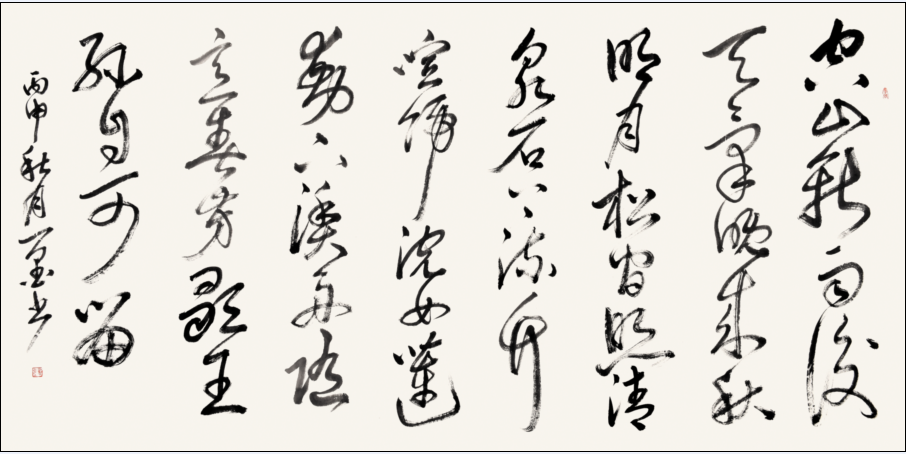 空山新雨後
天氣晚來秋
明月松間照清
泉石上流竹
喧歸浣女蓮
動下漁舟隨
意春芳歇王
孫自可留
丙申秋月一墨书